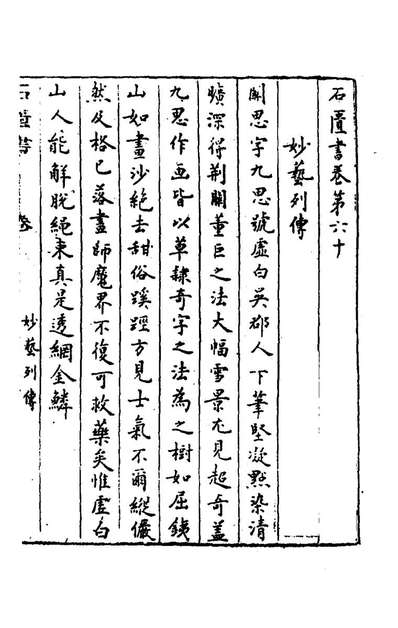 石匱書卷第六十
妙藝列傳
關思字九思號虛白吳郡人下筆堅凝點染清
曠深得荆關董巨之法大幅雪景尤見超奇蓋
九思作畫皆以草隸奇字之法為之樹如屈鐵
山如畫沙絕去甜俗蹊蹬方見士氣不爾縱儼
然及格已落畫師魔界不復可救藥矣惟虛白
山人能解脫繩束真是透網金鱗
石匱書
卷
妙藝列傳